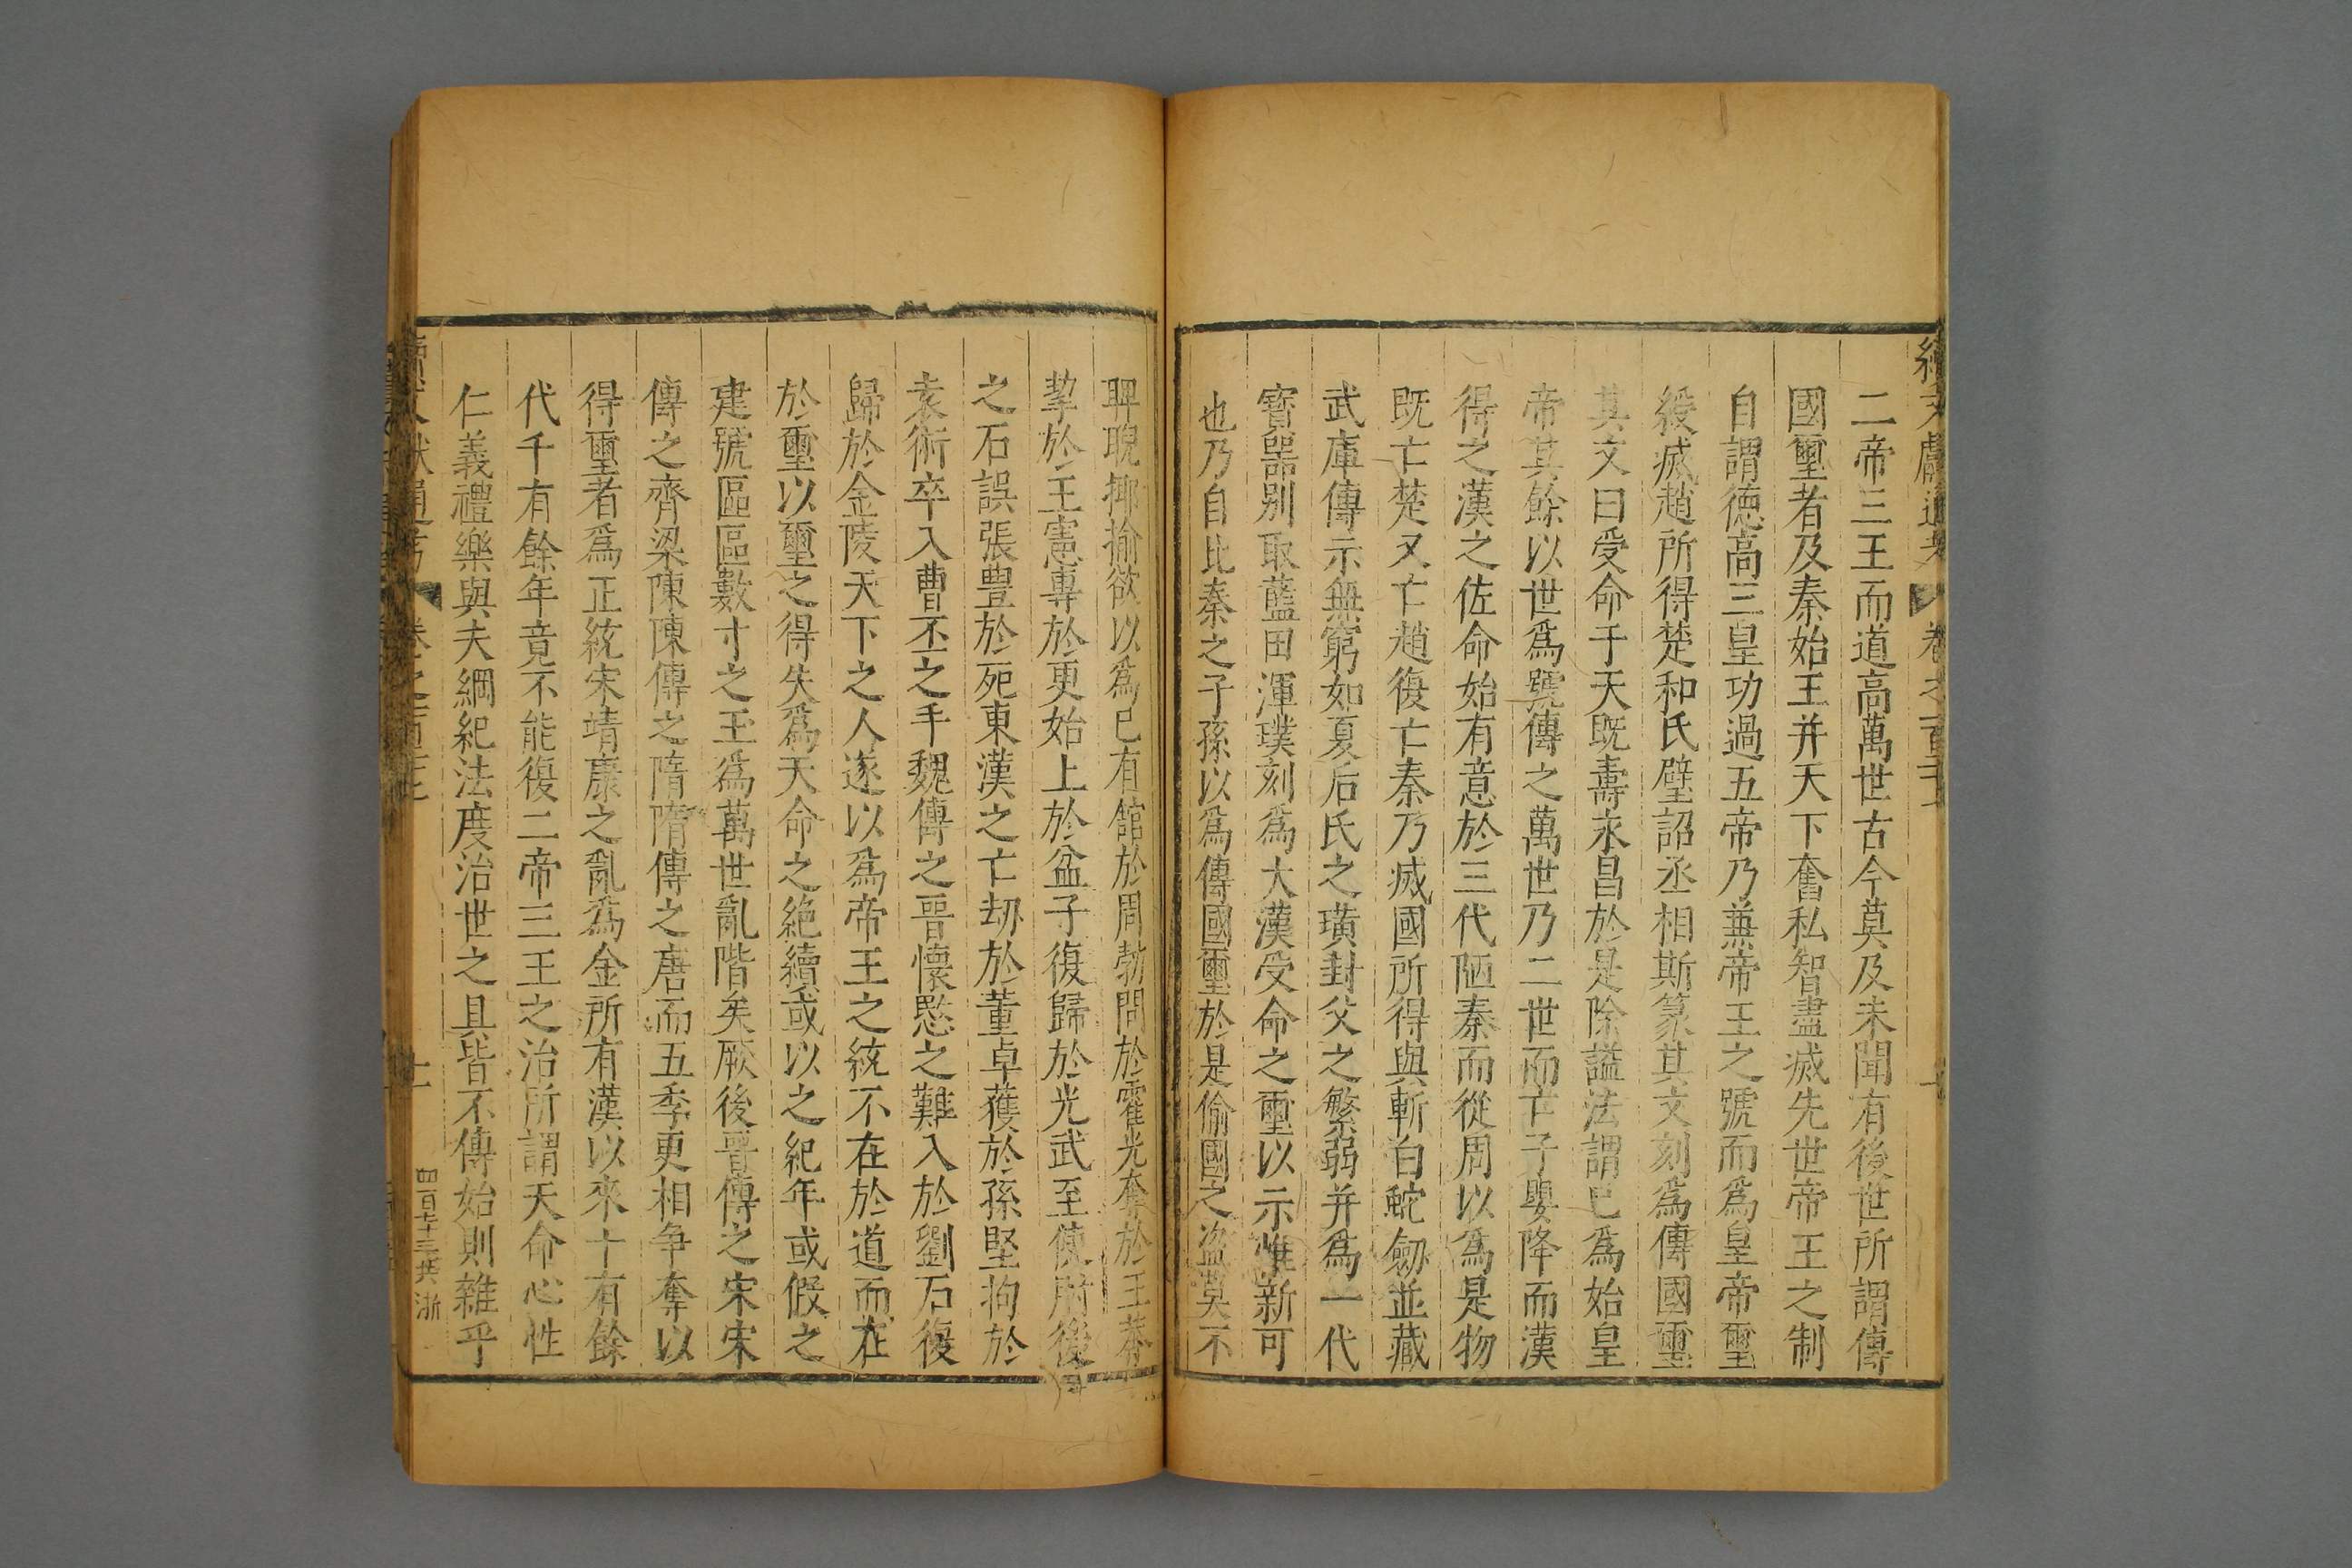 續文獻通考
卷之百
二帝三王而道高萬世古今莫及未聞有後世所謂傳
國璽者及秦始王并天下奮私智盡滅先世帝王之制
自謂德高三皇功過五帝乃兼帝王之號而爲皇帝璽
後滅趙所得楚和氏璧詔丞相斯篆其文刻爲傳國璽
其文曰受命于天既壽永昌於是除謚法謂已爲始皇
帝其餘以世爲號傳之萬世乃二世而亡子嬰降而漢
得之漢之佐命始有意於三代陋秦而從周以爲是物
既亡楚又亡趙復亡秦乃滅國所得與斬白蛇劒並藏
武庫傳示無窮如夏后氏之璜封父之繁弱并爲一代
寶器別取藍田渾璞刻爲大漢受命之璽以示惟新可
也乃自比秦之子孫以爲傳國璽於是偷國之盜莫不
睥睨揶揄欲以爲已有舘於周勃問於霍光奪於王莽
挈於王憲專於更始上於盆子復歸於光武至使肘後
之石誤張豊於死東漢之亡刼於董卓獲於孫堅拘於
袁術卒入曹丕之手魏傳之晋懷愍之難入於劉石復
歸於金陵天下之人遂以爲帝王之統不在於道而在
於璽以璽之得失爲天命之絶續或以之紀年或假之
建號區區數寸之玉爲萬世亂階矣厥後晋傳之宋宋
傳之齊梁陳陳傳之隋隋傳之唐而五季更相争奪以
得璽者爲正統宋靖康之亂爲金所有漢以來十有餘
代千有餘年竟不能復二帝三王之治所謂天命心性
仁義禮樂與夫綱紀法度治世之具皆不傳始則雜乎
卷之百
十一
四百七十三 共 浙